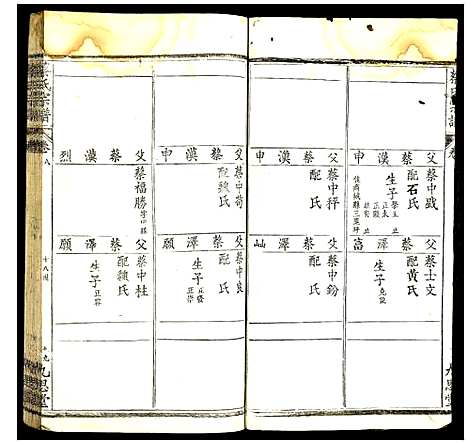 蔡氏宗譜
卷
父蔡漢申
蔡中戲
配石氏
生子
父蔡漢申
蔡中秤
配氏
父蔡漢申
蔡中苟
配魏氏
父蔡漢烈
蔡福勝
父蔡澤富
蔡士文
配黃氏
生子
父蔡澤屾
蔡中鈖
配氏
父蔡澤願
蔡中良
配氏
生子
父蔡澤願
蔡中桂
配賴氏
生子
蔡氏宗譜
卷八
九思堂
九思堂